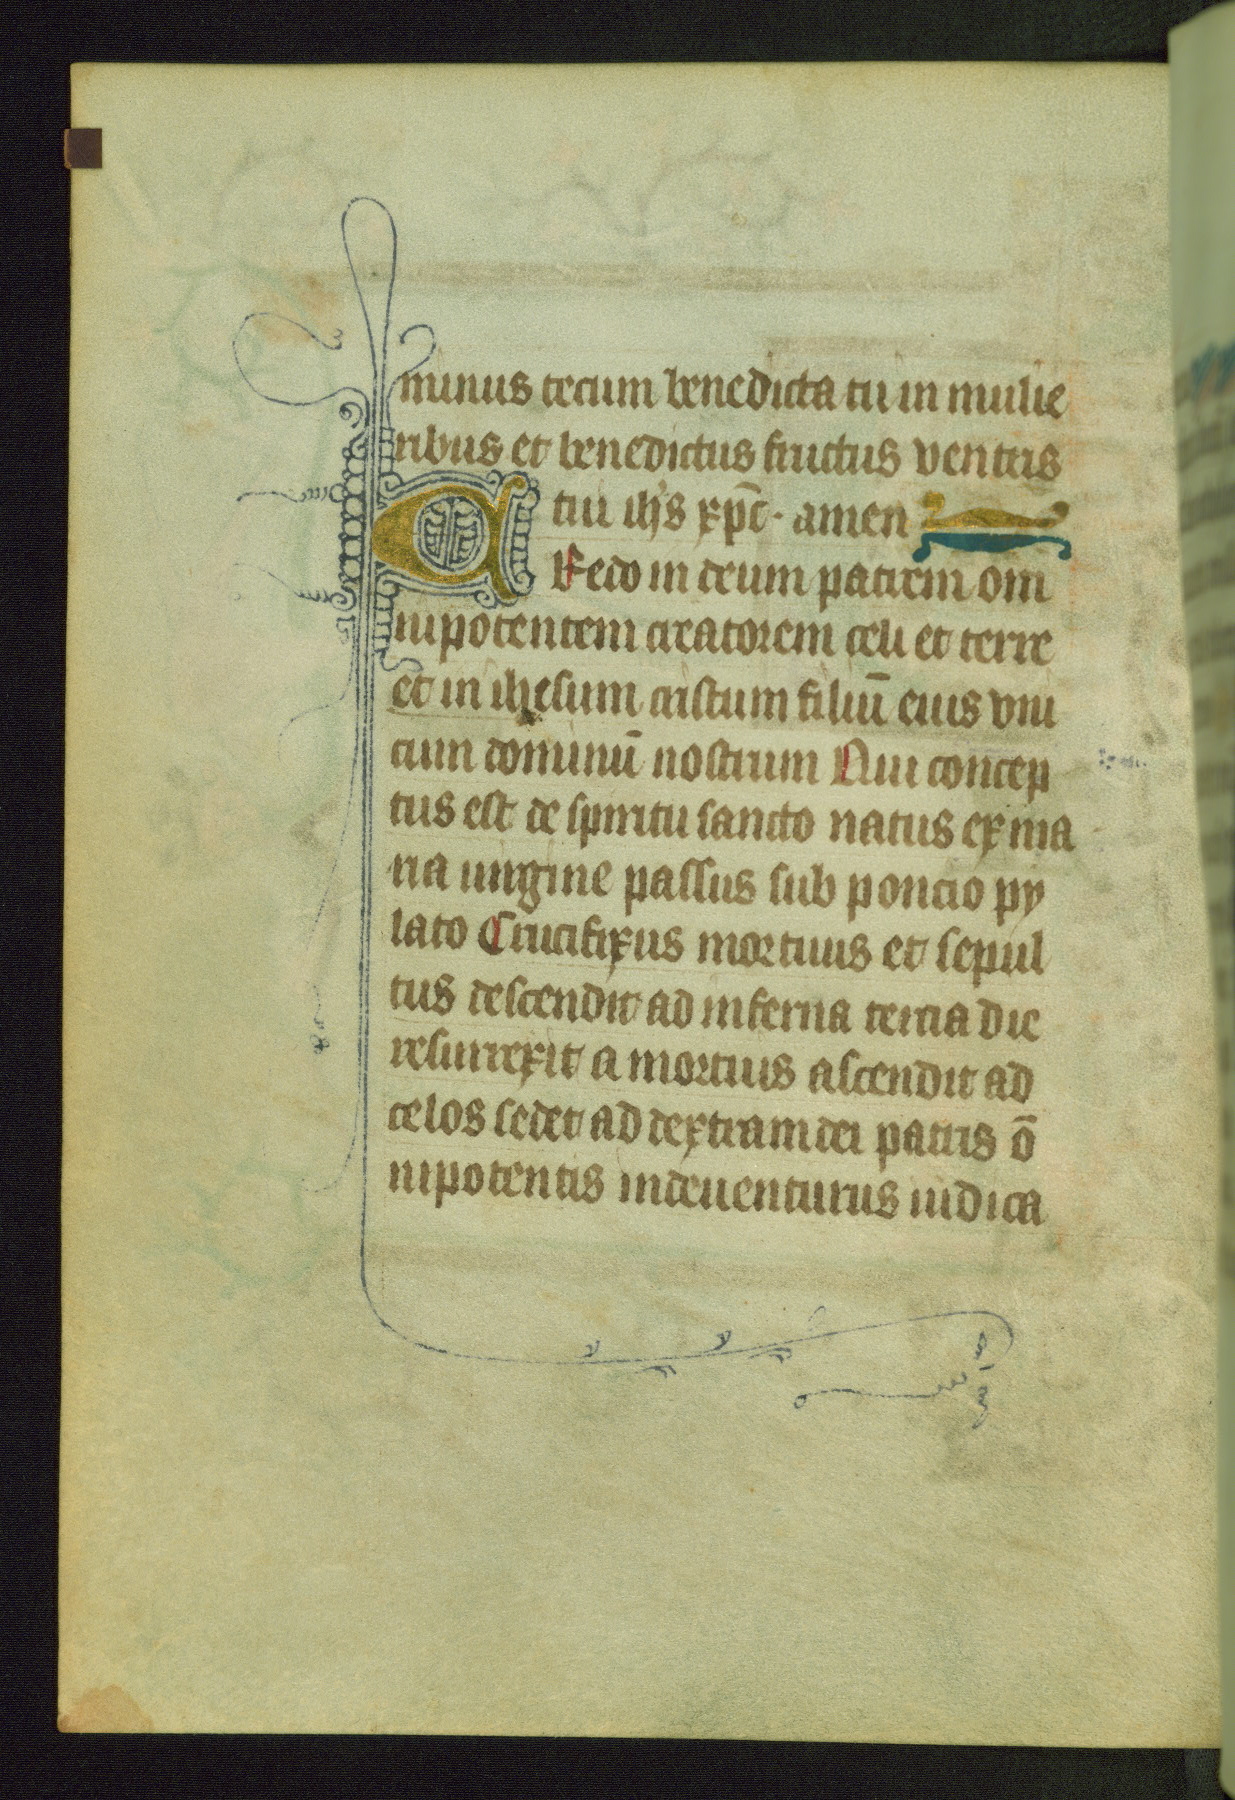 minus tecum benedicta tu in mulie
ribus et benedictus fructus ventris
tui ihs xpc̄· amen
CRedo in deum patrem om
nipotentem creatorem celi et terre
et in ihesum cristum filiū eius vni
cum dominū nostrum Qui concep
tus est de spiritu sancto natus ex ma
ria uirgine passus sub poncio py
lato Crucifixus mortuus et sepul
tus descendit ad inferna tercia die
resurrexit a mortuis ascendit ad
celos sedet ad dextram dei patris ō
nipotentis inde uenturus iudica